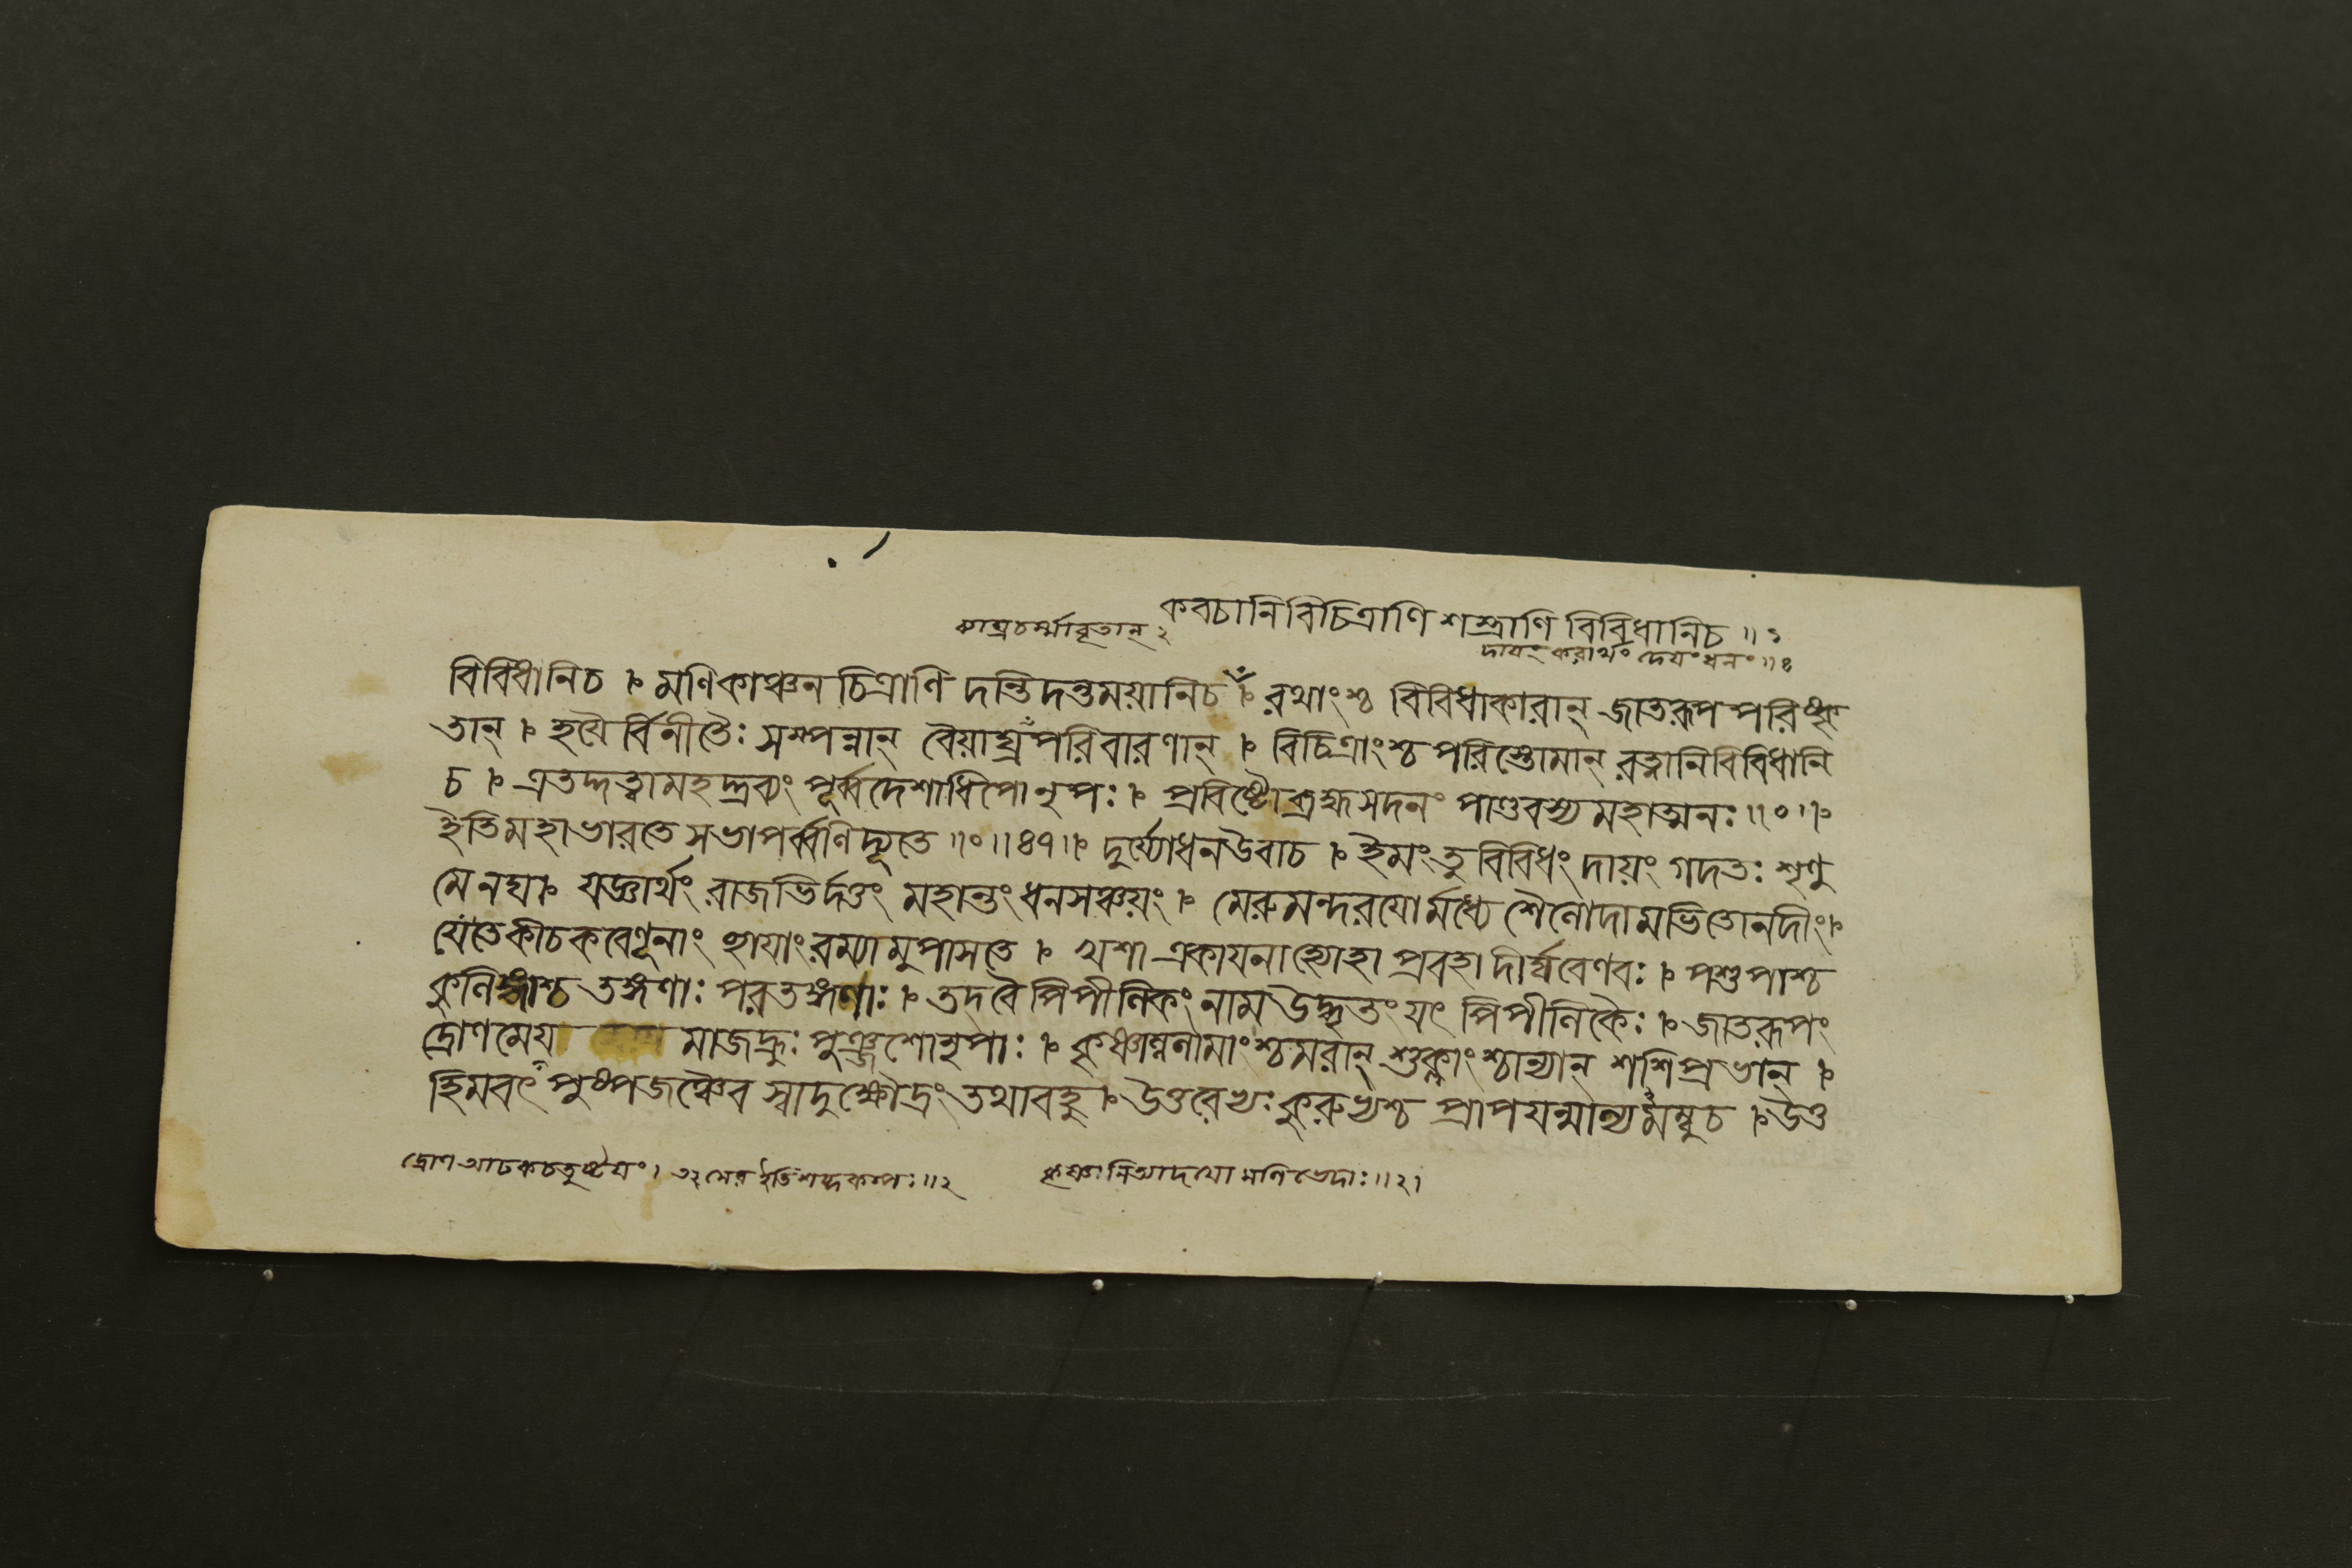 কবচানি বিচিত্রাণি শস্ত্রাণি বিবিধানি চ ॥ ১
ব্যাঘ্রচর্ম্মাবৃতান্ ২
দায়ং করার্থং দেয়ং ধনং ॥ ৪
বিবিধানি চ ৷ মণিকাঞ্চন চিত্রাণি দন্তিদন্তময়ানি চ ৷ রথাংশ্চ বিবিধাকারান্ জাতরূপ পরিষ্কৃ
তান্ ৷ হয়ৈর্বিনীতৈঃ সম্পন্নান্ বৈয়াঘ্র পরিবারণান্ ৷ বিচিত্রাংশ্চ পরিস্তোমান্ রত্নানি বিবিধানি
চ ৷ এতদ্দত্ত্বা মহদ্দ্রব্যং পূর্ব্বদেশাধিপো নৃপঃ ৷ প্রবিষ্টো ব্রহ্মসদনং পাণ্ডবস্য মহাত্মনঃ ॥০॥
ইতি মহাভারতে সভাপর্ব্বণি দ্যূতে ॥০॥৪৭॥ দুর্য্যোধন উবাচ ৷ ইমং তু বিবিধং দায়ং গদতঃ শৃণু
মেনঘ ৷ যজ্ঞার্থং রাজভির্দত্তং মহান্তং ধনসঞ্চয়ং ৷ মেরুমন্দরযোর্মধ্যে শৈলোদামভিতো নদীং ৷
যে তে কীচকবেণূনাং ছায়াং রম্যামুপাসতে ৷ খশা একায়না হ্যোহা প্রবহা দীর্ঘবেণবঃ ৷ পশুপাশ্চ
কুনিন্ধাশ্চ তঙ্গণাঃ পরতঙ্গণাঃ ৷ তদবৈ পিপীলিকং নাম উদ্ধৃত্তং যৎ পিপীলিকৈঃ ৷ জাতরূপং
দ্রোণমেয় মাজহ্রুঃ পুঞ্জশো নৃপাঃ ৷ কৃষ্ণান্ললামাংশ্চমরান্ শুক্লাংশ্চান্যান্ শশিপ্রভান্ ৷
হিমবৎ পুষ্পজঞ্চৈব স্বাদু ক্ষৌদ্রং তথা বহু ৷ উত্তরেভ্যঃ কুরুভ্যশ্চ প্রাপয়ন্মাল্যমম্বু চ ৷ উত্ত
দ্রোণ আঢকচতুষ্টয়ং ৷ ইতি শব্দকল্পঃ ॥ ২
কৃষ্ণানি আদয়ো মণিভেদাঃ ॥ ২৷